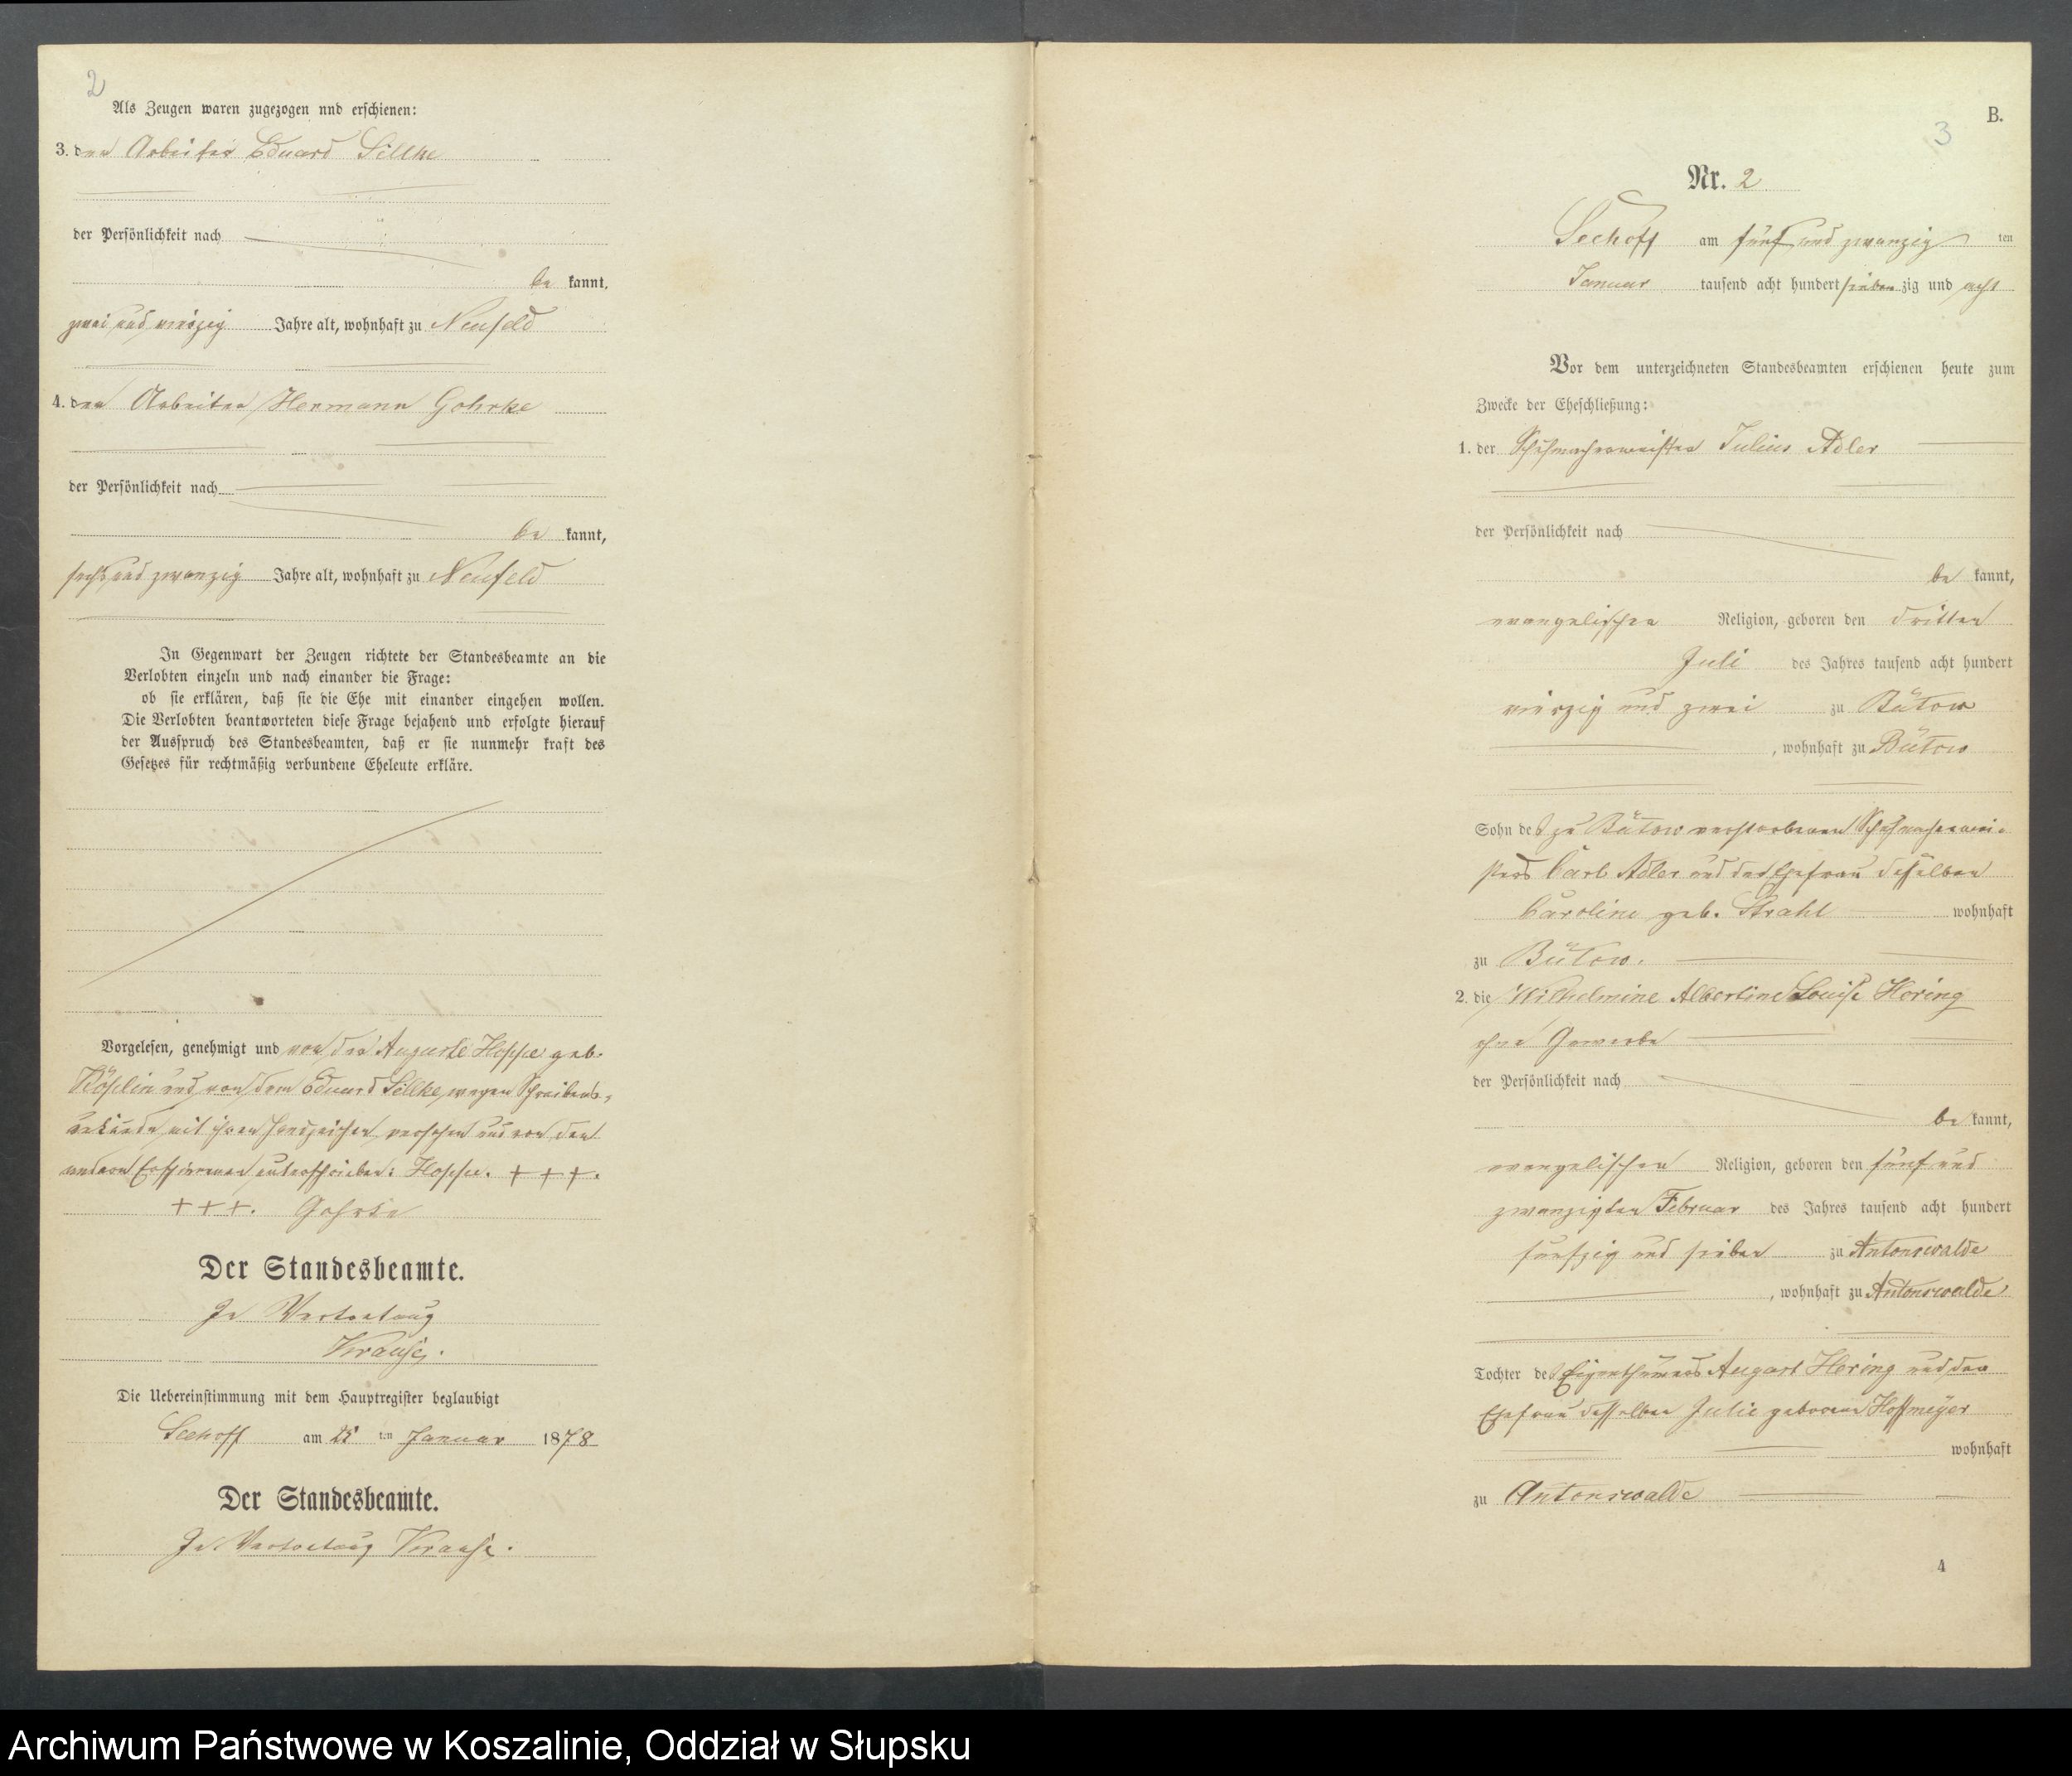 2
Als Zeugen waren zugezogen nnd erschienen:
3. den Arbeiter Eduard Sellke
der Persönlichkeit nach
be kannt,
zwei und vierzig Jahre alt, wohnhaft zu Neufeld
4. den Arbeiter Hermann Gohrke
der Persönlichkeit nach
be kannt,
sechs und zwanzig Jahre alt, wohnhaft zu Neufeld
In Gegenwart der Zeugen richtete der Standesbeamte an die
Verlobten einzeln und nach einander die Frage:
ob sie erklären, daß sie die Ehe mit einander eingehen wollen.
Die Verlobten beantworteten diese Frage bejahend und erfolgte hierauf
der Ausspruch des Standesbeamten, daß er sie nunmehr kraft des
Gesetzes für rechtmäßig verbundene Eheleute erkläre.
Vorgelesen, genehmigt und von der Auguste Hoppe geb.
und von dem Eduard Sellke wegen Schreibens-
unkunde mit ihren Handzeichen versehen und von den
andern Erschienenen unterschrieben: Hoppe. + + +.
+ + +. Gohrke
Der Standesbeamte.
In Vertretung
Krause.
Die Uebereinstimmung mit dem Hauptregister beglaubigt
Seehoff am 25 ten Januar 1878
Der Standesbeamte.
In Vertretung Krause.
B.
3
Nr. 2
Seehoff am fünf und zwanzig ten
Januar tausend acht hundert sieben zig und acht
Vor dem unterzeichneten Standesbeamten erschienen heute zum
Zwecke der Eheschließung:
1. der Schuhmachermeister Julius Adler
der Persönlichkeit nach
be kannt,
evangelischer Religion, geboren den dritten
Juli des Jahres tausend acht hundert
vierzig und zwei zu Bütow
, wohnhaft zu Bütow
Sohn des zu Bütow verstorbenen Schuhmachermei-
sters Carl Adler und der Ehefrau desselben
Caroline geb. Strahl wohnhaft
zu Bütow.
2. die Wilhelmine Albertine Louise Hering
ohne Gewerbe
der Persönlichkeit nach
be kannt,
evangelischer Religion, geboren den fünf und
zwanzigsten Februar des Jahres tausend acht hundert
fünfzig und sieben zu Antonswalde
, wohnhaft zu Antonswalde
Tochter des Eigenthümers August Hering und der
Ehefrau desselben Julie geborene Hoffmeyer
wohnhaft
zu Antonswalde
4
Archiwum Państwowe w Koszalinie, Oddział w Słupsku